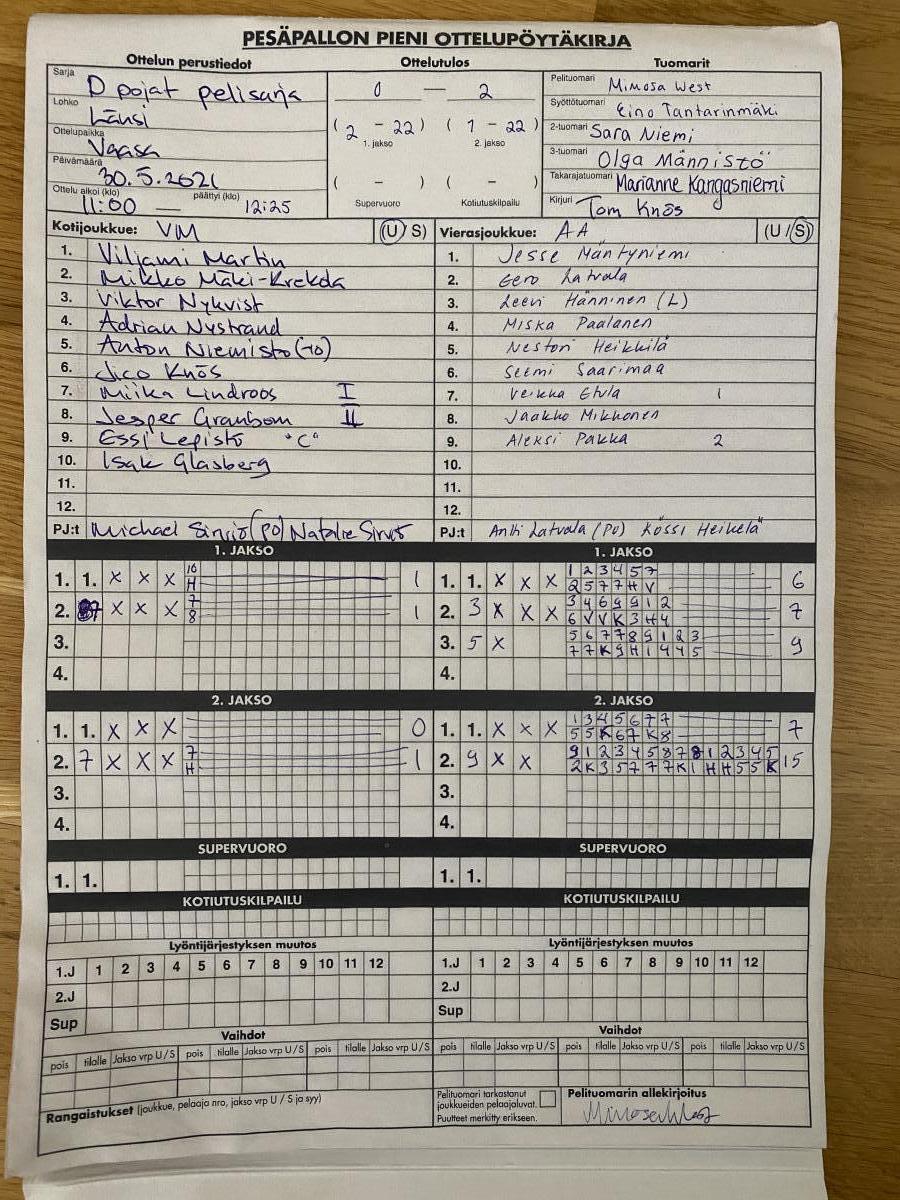 PESÄPALLON PIENI OTTELUPÖYTÄKIRJA
Ottelun perustiedot Ottelutulos Tuomarit
Sarja D pojat pelisarja
Lohko Länsi
Ottelupaikka Vaasa
Päivämäärä 30.5.2021
Ottelu alkoi (klo) 11:00 — päättyi (klo) 12:25
0 — 2
(2 - 22) (1 - 22)
1. jakso 2. jakso
( - ) ( - )
Supervuoro Kotiutuskilpailu
Pelituomari Mimosa West
Syöttötuomari Eino Tantarinmäki
2-tuomari Sara Niemi
3-tuomari Olga Männistö
Takarajatuomari Marianne Kangasniemi
Kirjuri Tom Knös
Kotijoukkue: VM (U S)
1. Viljami Martin
2. Mikko Mäki-Krekola
3. Viktor Nykvist
4. Adrian Nystrand
5. Anton Niemistö (TO)
6. Jico Knös
7. Miika Lindroos I
8. Jesper Granbom II
9. Essi Lepistö "C"
10. Isak Glasberg
11.
12.
PJ:t Michael (PO) Natalie
Vierasjoukkue: AA (U / S)
1. Jesse Mäntyniemi
2. Eero Latvala
3. Leevi Hänninen (L)
4. Miska Paalanen
5. Nestori Heikkilä
6. Seemi Saarimaa
7. Veikka Etula 1
8. Jaakko Mikkonen
9. Aleksi Pakka 2
10.
11.
12.
PJ:t Antti Latvala (PO) Kössi Heikelä
1. JAKSO
1. 1. X X X 10 1
H
2. X X X 7 1
8
3.
4.
1. JAKSO
1. 1. X X X 1 2 3 4 5 7 6
2 5 7 7 H V
2. 3 X X X 3 4 6 9 9 1 2 7
6 V V K 3 H 4
3. 5 X 5 6 7 7 8 9 1 2 3 9
7 7 K 9 H 1 4 4 5
4.
2. JAKSO
1. 1. X X X 0
2. 7 X X X 7 1
H
3.
4.
2. JAKSO
1. 1. X X X 1 3 4 5 6 7 7 7
5 5 K 6 7 K 8
2. 9 X X 9 1 2 3 4 5 8 7 8 1 2 3 4 5 15
2 K 3 5 7 7 7 K 1 H H 5 5 K
3.
4.
SUPERVUORO SUPERVUORO
1. 1. 1. 1.
KOTIUTUSKILPAILU KOTIUTUSKILPAILU
Lyöntijärjestyksen muutos Lyöntijärjestyksen muutos
1.J 1 2 3 4 5 6 7 8 9 10 11 12 1.J 1 2 3 4 5 6 7 8 9 10 11 12
2.J 2.J
Sup Sup
Vaihdot Vaihdot
pois tilalle Jakso vrp U/S pois tilalle Jakso vrp U/S pois tilalle Jakso vrp U/S pois tilalle Jakso vrp U/S pois tilalle Jakso vrp U/S pois tilalle Jakso vrp U/S
Rangaistukset (joukkue, pelaaja nro, jakso vrp U / S ja syy)
Pelituomari tarkastanut
joukkueiden pelaajaluvat.
Puutteet merkitty erikseen.
Pelituomarin allekirjoitus
Mimosa West